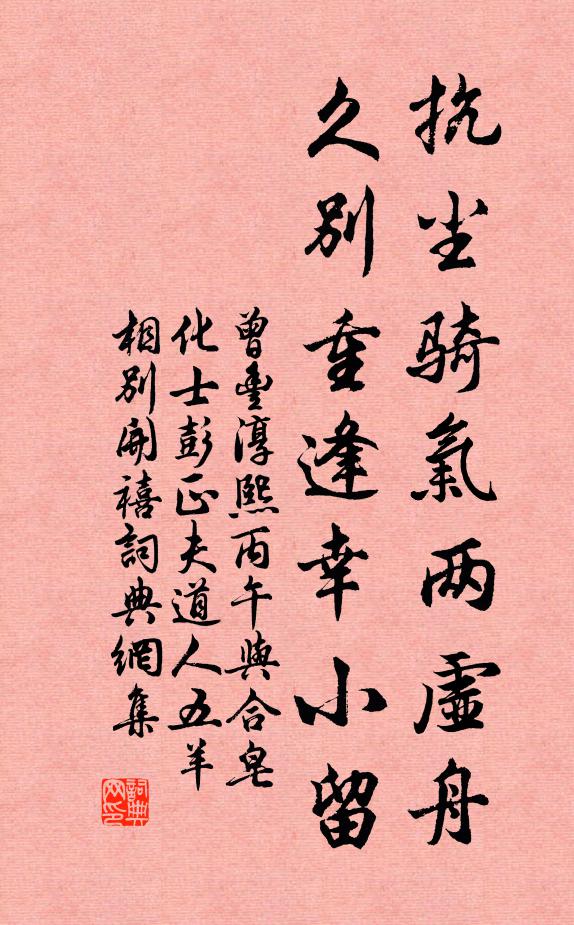 抗尘骑氣两虚舟
久别重逢幸小留
曾豊淳熙丙午與合皂
化士彭正夫道人五羊
相别開禧詞典網集
詞典网印